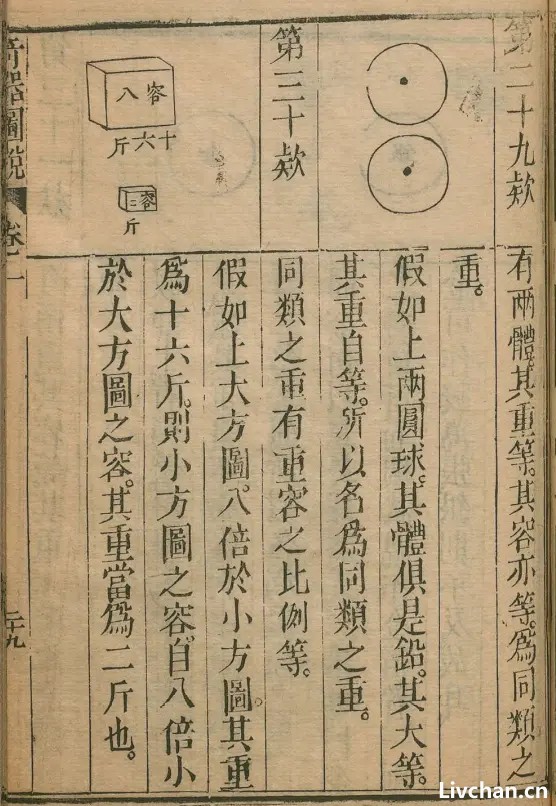 第二十九欵
有兩體其重等。其容亦等。爲同類之
重。
假如上兩圓球。其體俱是鉛。其大等。
其重自等。所以名爲同類之重。
第三十欵
同類之重有重容之比例等。
容八
十六斤
容二
斤
假如上大方圖。八倍於小方圖。其重
爲十六斤。則小方圖之容。自八倍小
於大方圖之容。其重當爲二斤也。
奇器圖說
卷一
二十九
Livchan.cn